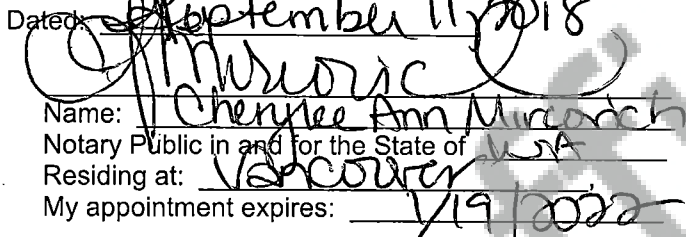 Dated: September 11, 2018
Name: Cherylee Ann Mircovich
Notary Public in and for the State of WA
Residing at: Vancouver
My appointment expires: 1/19/2022